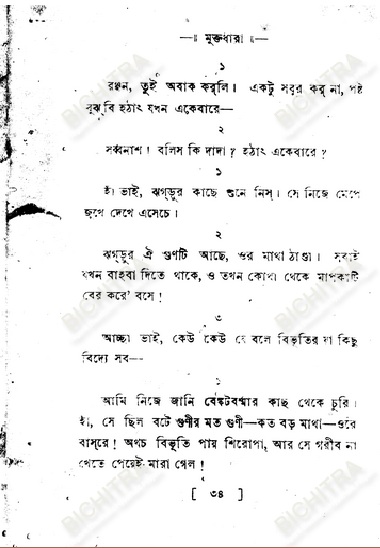 —॥ মুক্তধারা ॥—
১
রঞ্জন, তুই অবাক কর্‌লি। একটু সবুর কর্‌ না, পষ্ট
বুঝ্‌বি হঠাৎ যখন একেবারে—
২
সর্ব্বনাশ! বলিস কি দাদা? হঠাৎ একেবারে?
১
হাঁ ভাই, ঝগড়ুর কাছে শুনে নিস্‌। সে নিজে মেপে
জুখে দেখে এসেচে।
২
ঝগড়ুর ঐ গুণটি আছে, ওর মাথা ঠাণ্ডা। সবাই
যখন বাহবা দিতে থাকে, ও তখন কোথা থেকে মাপকাটী
বের করে’ বসে!
৩
আচ্ছা ভাই, কেউ কেউ যে বলে বিভূতির যা কিছু
বিদ্যে সব—
১
আমি নিজে জানি বেঙ্কটবর্ম্মার কাছ থেকে চুরি।
হাঁ, সে ছিল বটে গুণীর মত গুণী—কত বড় মাথা—ওরে
বাস্‌রে! অথচ বিভূতি পায় শিরোপা, আর সে গরীব না
খেতে পেয়েই মারা গেল!
[ ৩৪ ]
BICHITRA